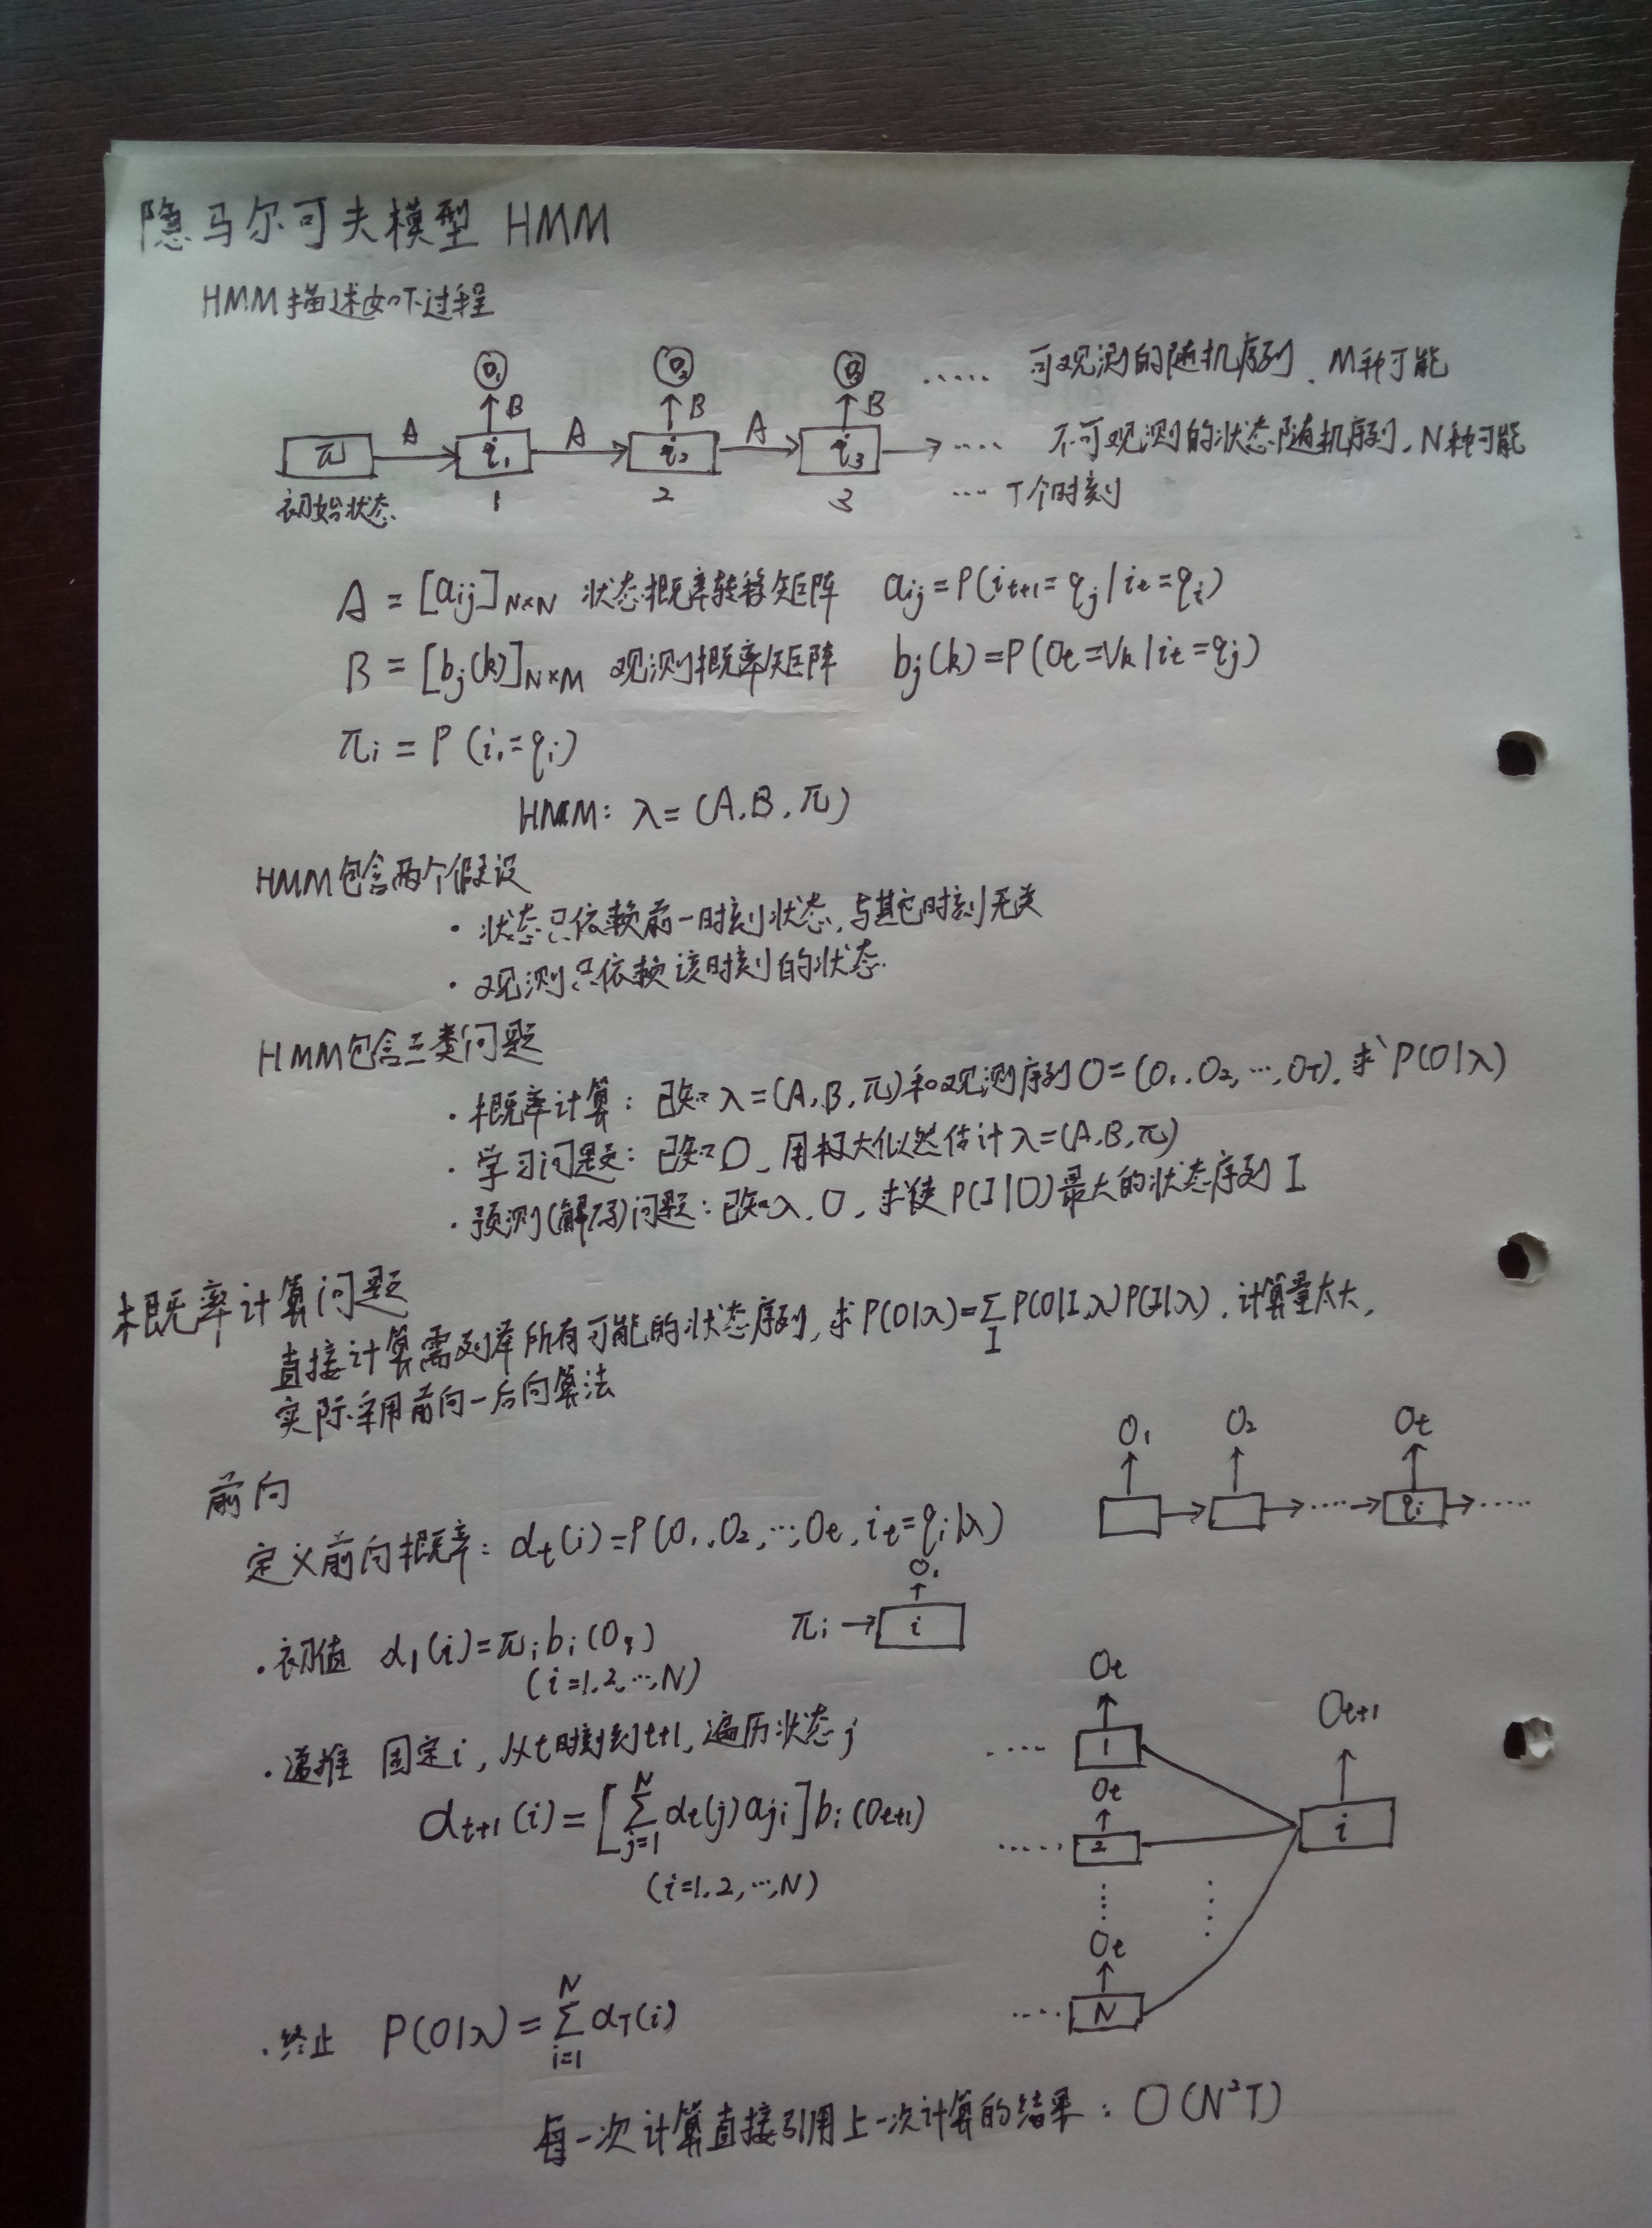 隐马尔可夫模型 HMM
HMM描述如下过程
O₁ O₂ O₃ ····· 可观测的随机序列, M种可能
B B B
π A i₁ A i₂ A i₃ ···· 不可观测的状态随机序列, N种可能
初始状态 1 2 3 ···· T个时刻
A = [aij]N×N 状态概率转移矩阵 aij = P(it+1 = qj | it = qi)
B = [bj(k)]N×M 观测概率矩阵 bj(k) = P(Ot = Vk | it = qj)
πi = P(i₁ = qi)
HMM: λ = (A, B, π)
HMM包含两个假设
· 状态只依赖前一时刻状态, 与其它时刻无关
· 观测只依赖该时刻的状态
HMM包含三类问题
· 概率计算: 已知λ=(A,B,π)和观测序列O=(O₁,O₂,···,OT), 求P(O|λ)
· 学习问题: 已知O, 用极大似然估计λ=(A,B,π)
· 预测(解码)问题: 已知λ, O, 求使P(I|O)最大的状态序列I
概率计算问题
直接计算需列举所有可能的状态序列, 求P(O|λ)=∑I P(O|I,λ)P(I|λ), 计算量太大,
实际采用前向-后向算法
O₁ O₂ Ot
前向
qi ·····
定义前向概率: αt(i)=P(O₁,O₂,···,Ot, it=qi|λ)
O₁
· 初值 α₁(i)=πibi(O₁) πi→ i
(i=1,2,···,N)
Ot
Ot+1
· 递推 固定i, 从t时刻到t+1, 遍历状态j ···· 1
Ot
αt+1(i) = [∑j=1N αt(j)aji]bi(Ot+1) ····· 2 i
(i=1,2,···,N)
Ot
···· N
· 终止 P(O|λ) = ∑i=1N αT(i)
每一次计算直接引用上一次计算的结果: O(N²T)